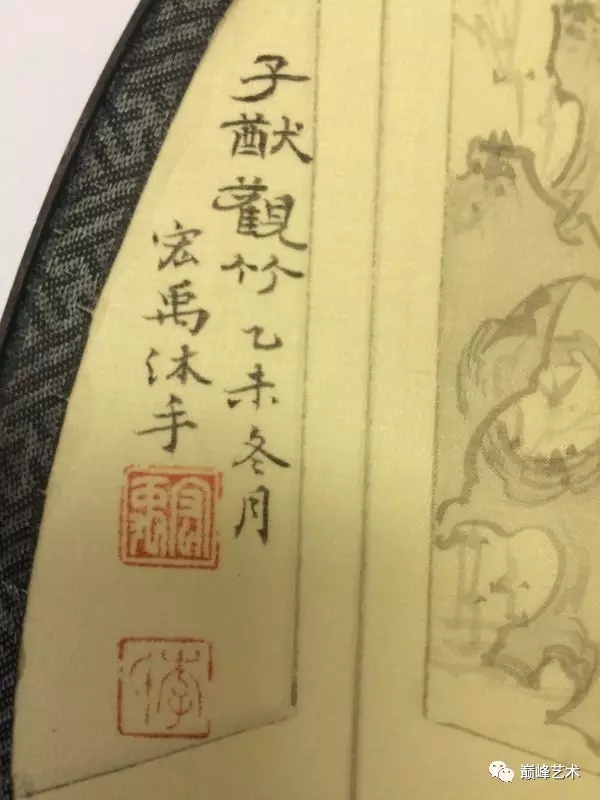 子猷觀竹乙未冬月
宏禹沐手
宏禹
巅峰艺术